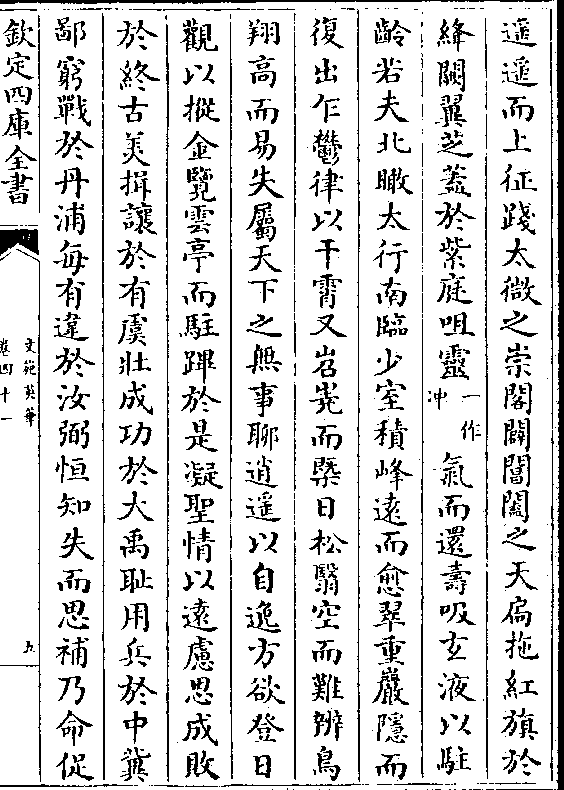 遥遥而上征踐太微之崇閣闢閶闔之天扃拖紅旗於
絳闕翼芝葢於紫庭咀靈一作冲氣而還壽吸玄液以駐
齡若夫北瞰太行南臨少室積峰遠而愈翠重巖隱而
復出乍鬱律以干霄又岧嶤而檗日松翳空而難辨鳥
翔高而易失屬天下之無事聊逍遥以自逸方欲登日
觀以摐金覽雲亭而駐蹕於是凝聖情以遠慮思成敗
於終古羙揖讓於有虞壯成功於大禹耻用兵於中冀
鄙窮戰於丹浦每有違於汝弼恒知失而思補乃命促
欽定四庫全書
文苑英華
卷四十一
五